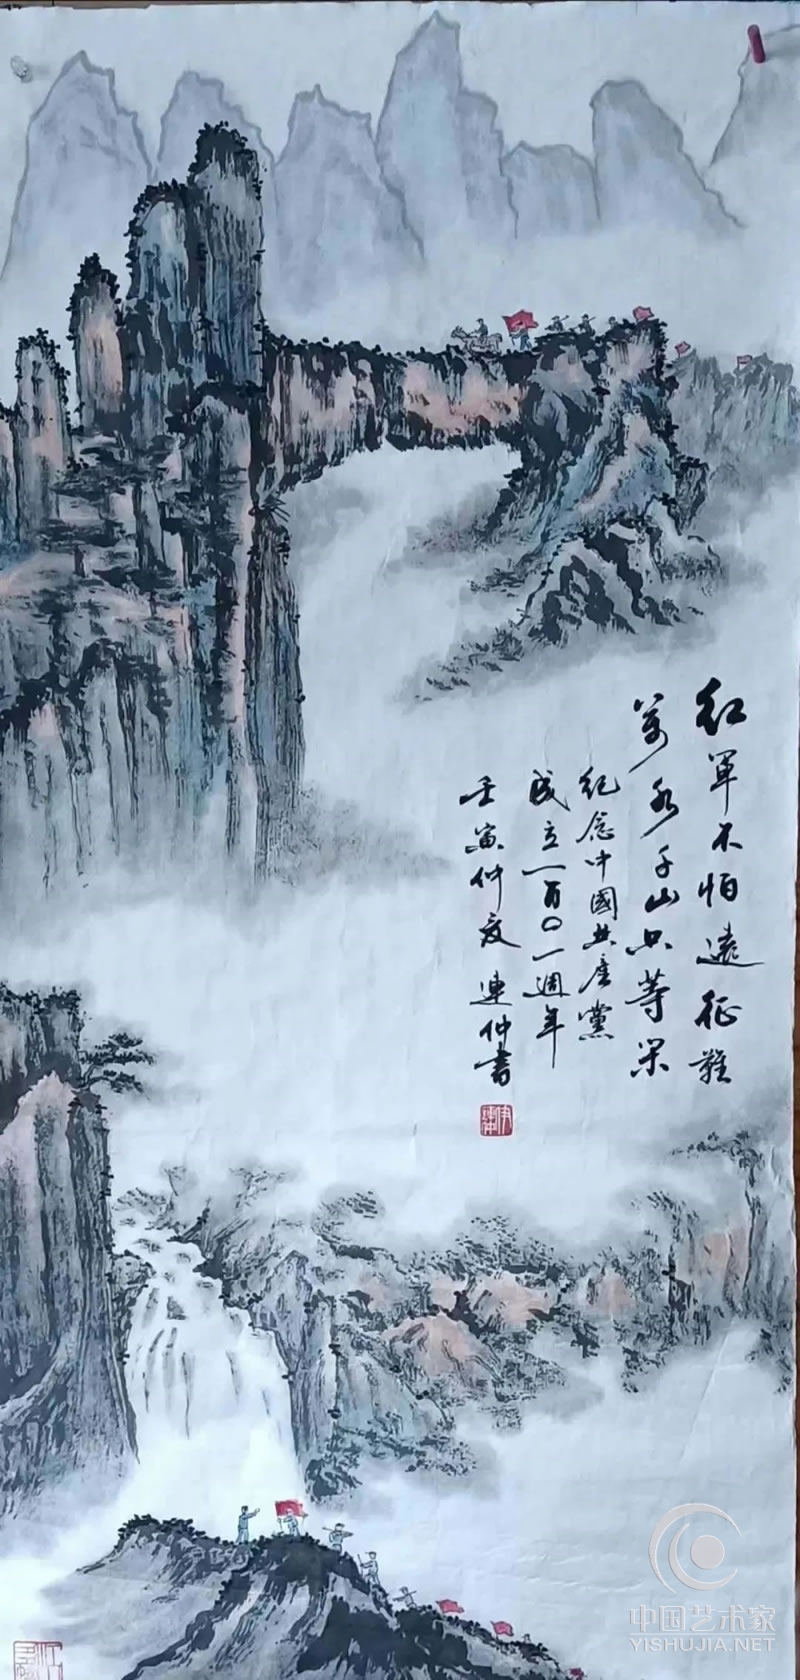 红军不怕遠征難
萬水千山只等闲
纪念中國共産黨
成立一百〇一週年
壬寅仲夏連仲書
中国艺术家
YISHUJIA.NET